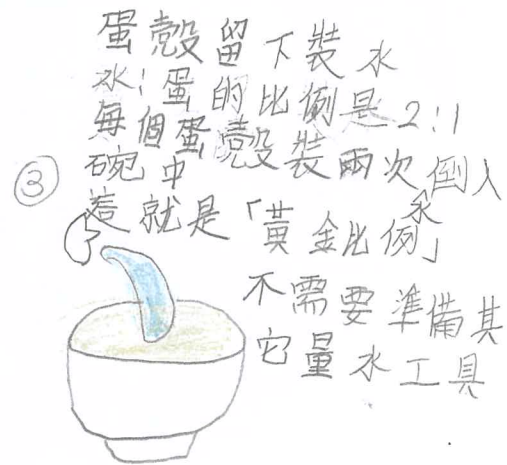 蛋殼留下裝水
水:蛋的比例是2:1
每個蛋殼裝兩次水倒入
碗中
③
這就是「黃金比例」
不需要準備其
它量水工具